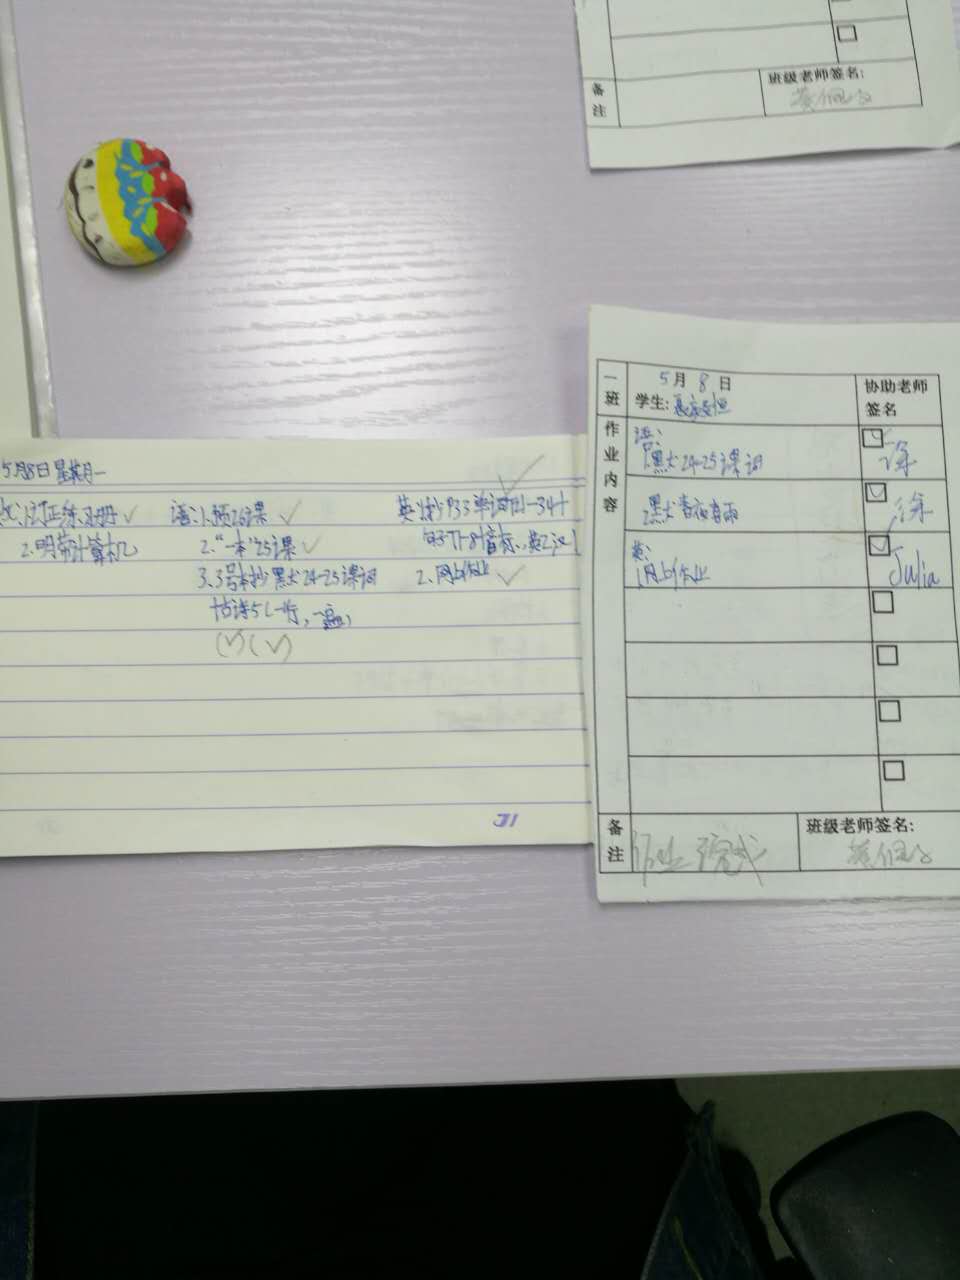 备注
班级老师签名:
5月8日 星期一
1.订正练习册
2.明带计算机
语:1.预26课
2."一本"25课
3.3号本抄黑大24-25课词
古诗5(一行,一遍)
英:1.抄P33单词21-34+
句子7-8+音标,英2汉1
2.网上作业
J1
一班
5月8日
学生:
协助老师签名
作业内容
语:
1.黑大24-25课词
徐
2.黑大春夜喜雨
徐
英:
1.网上作业
Julia
备注
作业完成
班级老师签名: